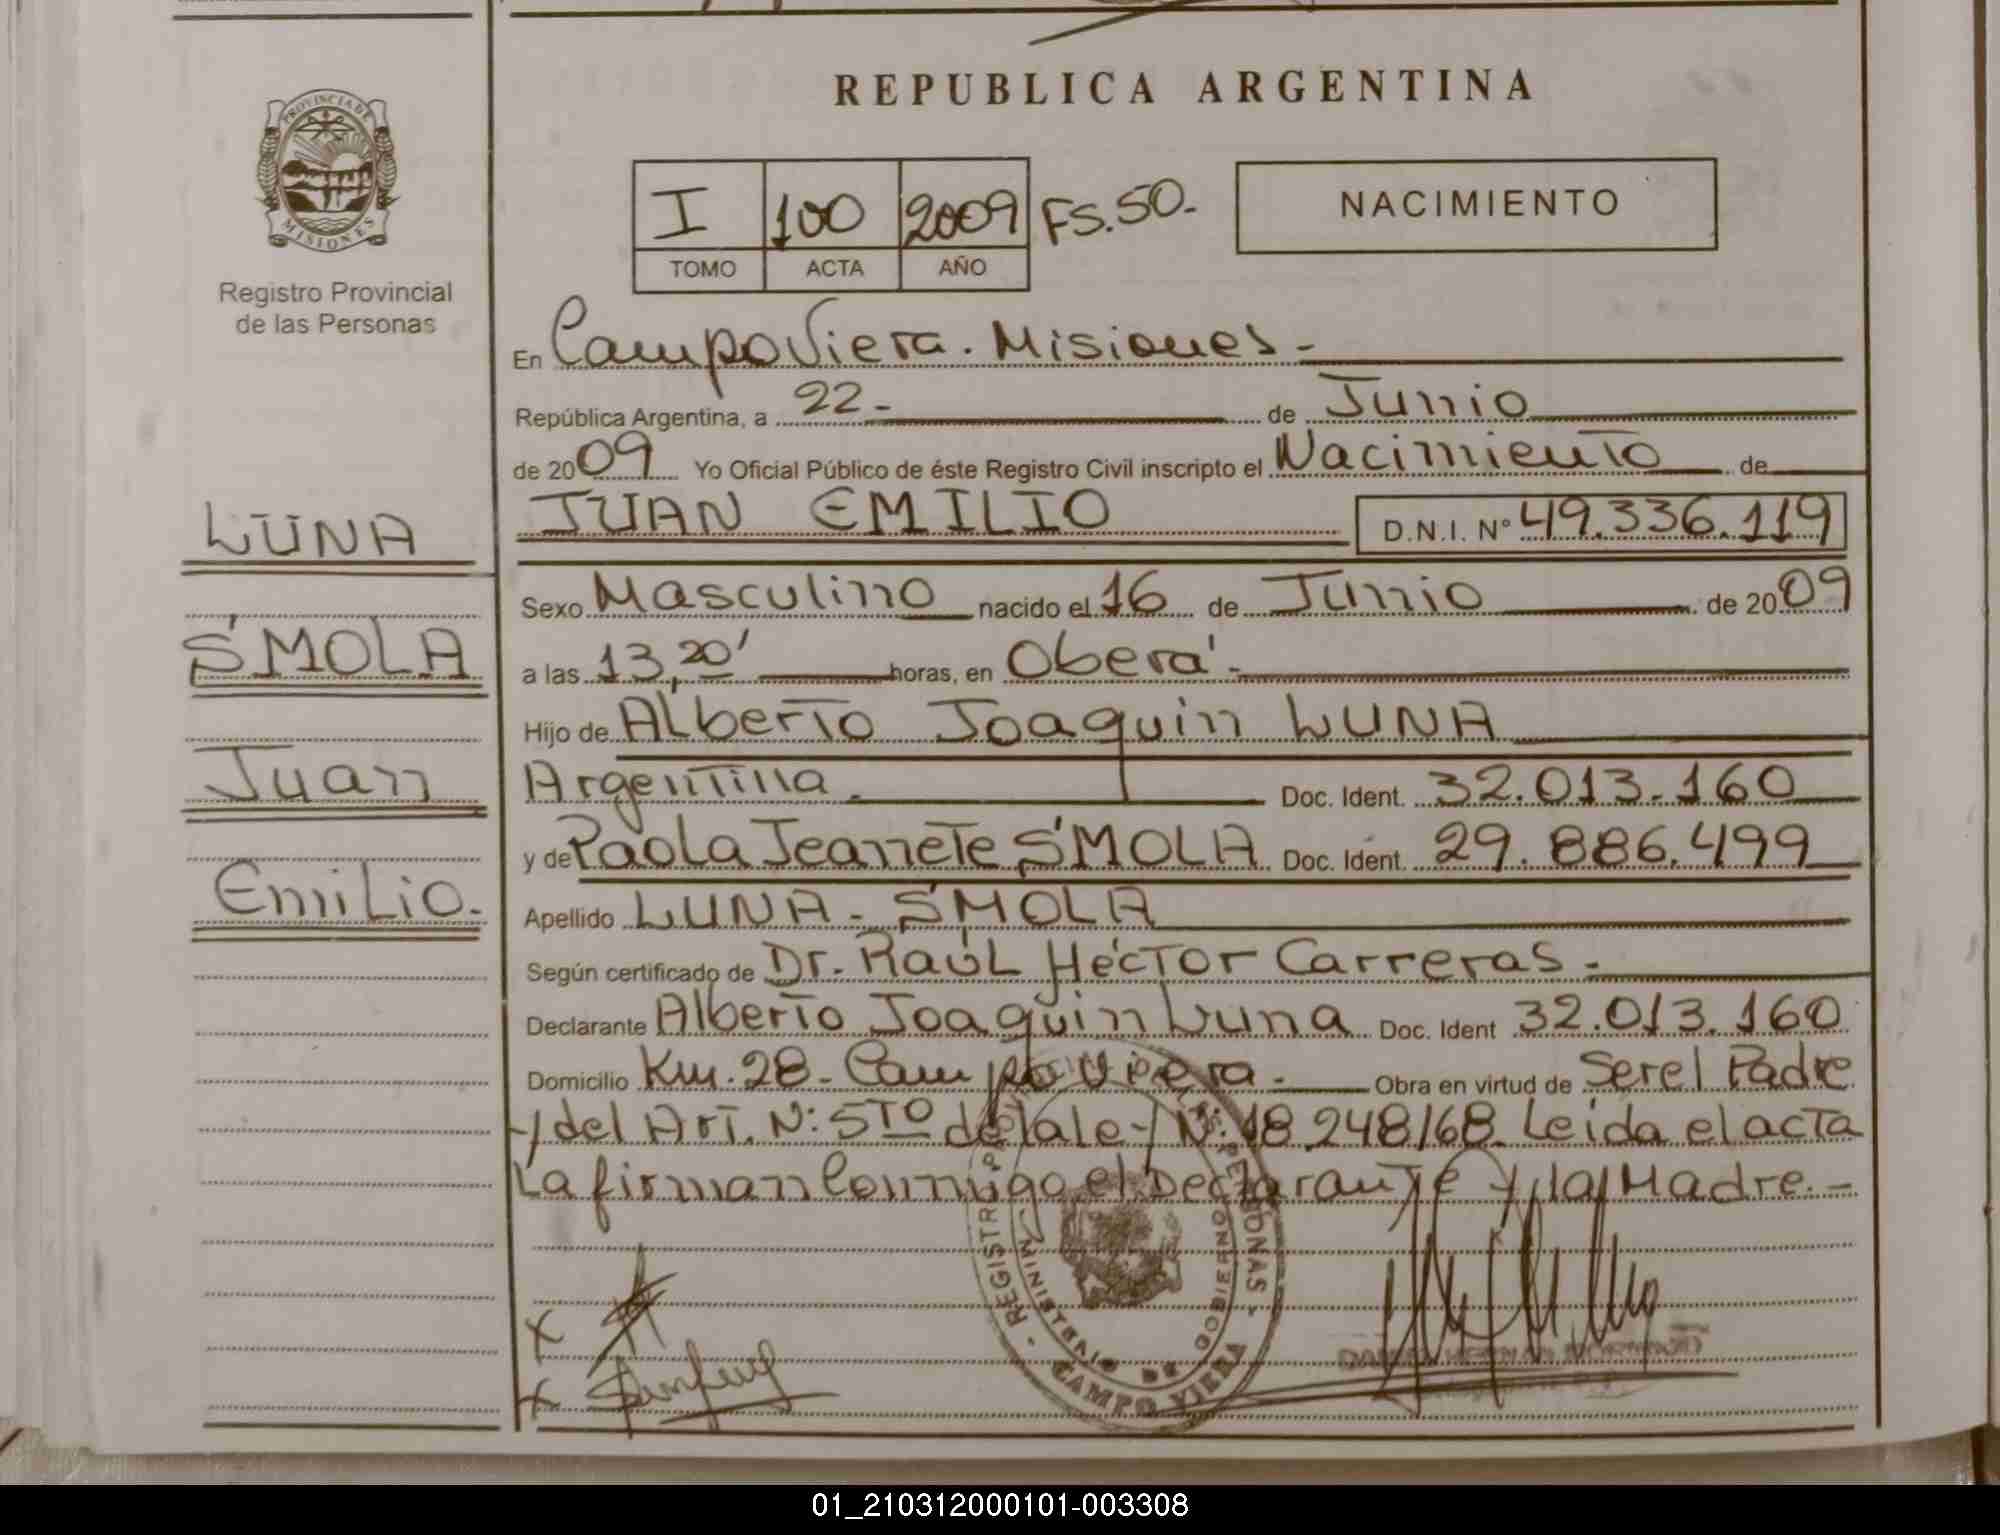 REPUBLICA ARGENTINA
PROVINCIA DE
MISIONES
Registro Provincial
de las Personas
I 100 2009 FS.50.-
TOMO ACTA AÑO
NACIMIENTO
En Campo Viera. Misiones -
República Argentina, a 22 - de Junio
de 2009 Yo Oficial Público de éste Registro Civil inscripto el Nacimiento de
JUAN EMILIO D.N.I. Nº 49.336.119
LUNA
SMOLA
Juan
Emilio.-
Sexo Masculino nacido el 16 de Junio de 2009
a las 13,20' horas, en Oberá.-
Hijo de Alberto Joaquin LUNA
Argentina.- Doc. Ident. 32.013.160
y de Paola Jeanete SMOLA Doc. Ident. 29.886.499
Apellido LUNA - SMOLA
Según certificado de Dr. Raúl Héctor Carreras.-
Declarante Alberto Joaquin Luna Doc. Ident 32.013.160
Domicilio Km. 28 - Campo Viera.- Obra en virtud de Ser el Padre
y del Art. N: 5TO de la ley N: 18.248/68. Leida el acta
La firman Conmigo el Declarante y la Madre.-
x
x
- REGISTRO PERSONAS -
MINISTERIO DE GOBIERNO
CAMPO VIERA
01_210312000101-003308